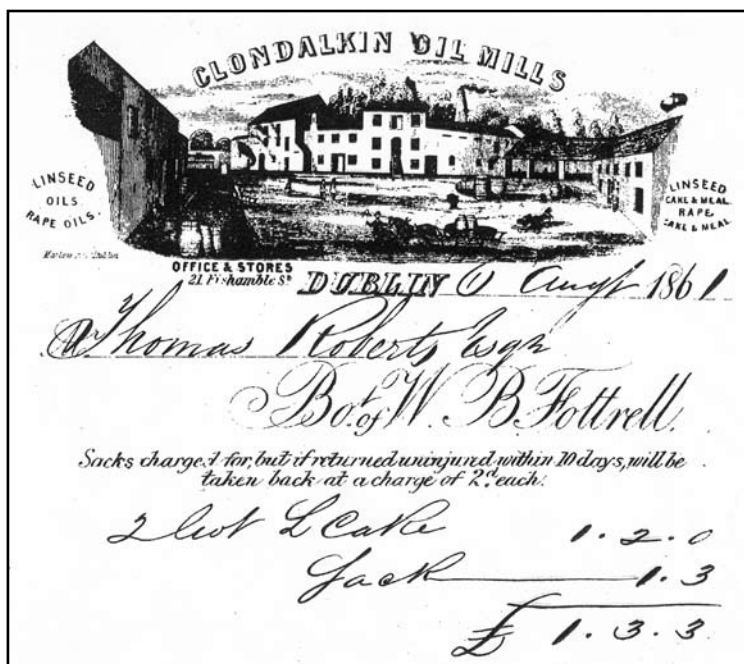 CLONDALKIN OIL MILLS
LINSEED
OILS
RAPE OILS.
LINSEED
CAKE & MEAL
RAPE
CAKE & MEAL
OFFICE & STORES
21 Fishamble St
DUBLIN 6 Augt 1861
Thomas Roberts Esqr
Bot. of W. B. Fottrell.
Sacks charged for, but if returned uninjured within 10 days, will be
taken back at a charge of 2d. each.
2 Cwt L Cake 1.2.0
Sack 1.3
£ 1.3.3